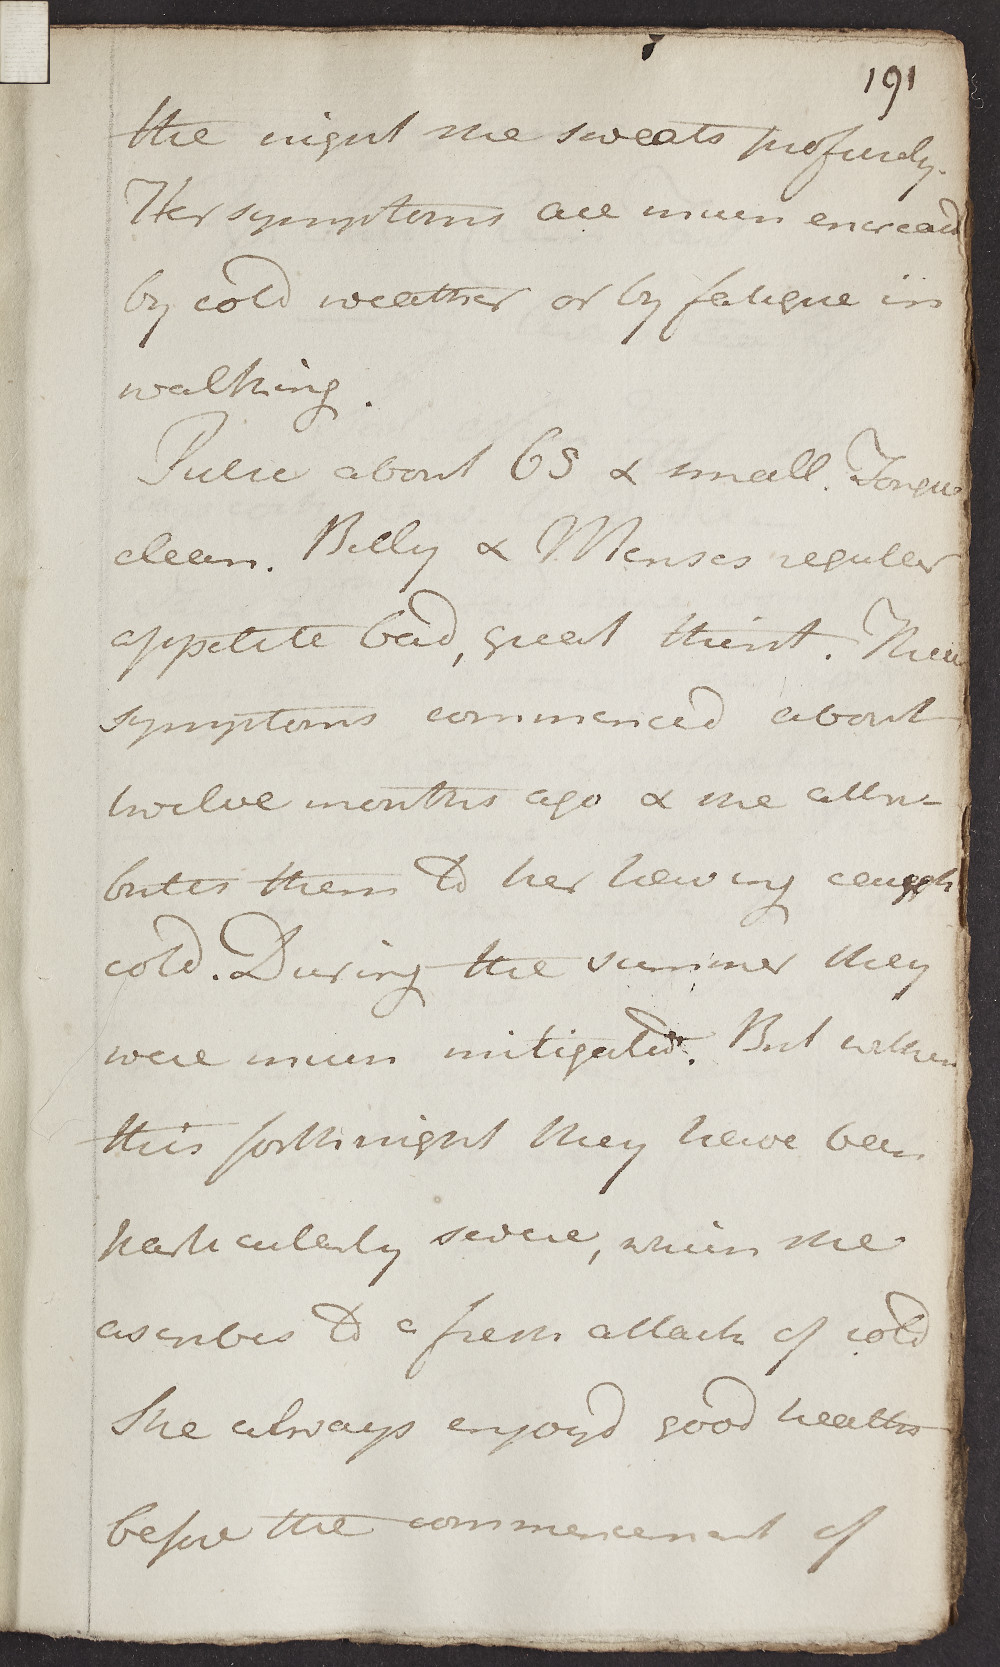 191
the night she sweats profusely.
Her symptoms are much encreas'd
by cold weather or by fatigue in
walking.
Pulse about 65 & small. Tongue
clean. Belly & Menses regular
appetite bad, great thirst. These
symptoms commenced about
twelve months ago & she attri-
butes them to her having caught
cold. During the summer they
were much mitigated. But within
this forthnight they have been
particularly severe, which she
ascribes to a fresh attack of cold
She always enjoy'd good health
before the commencement of